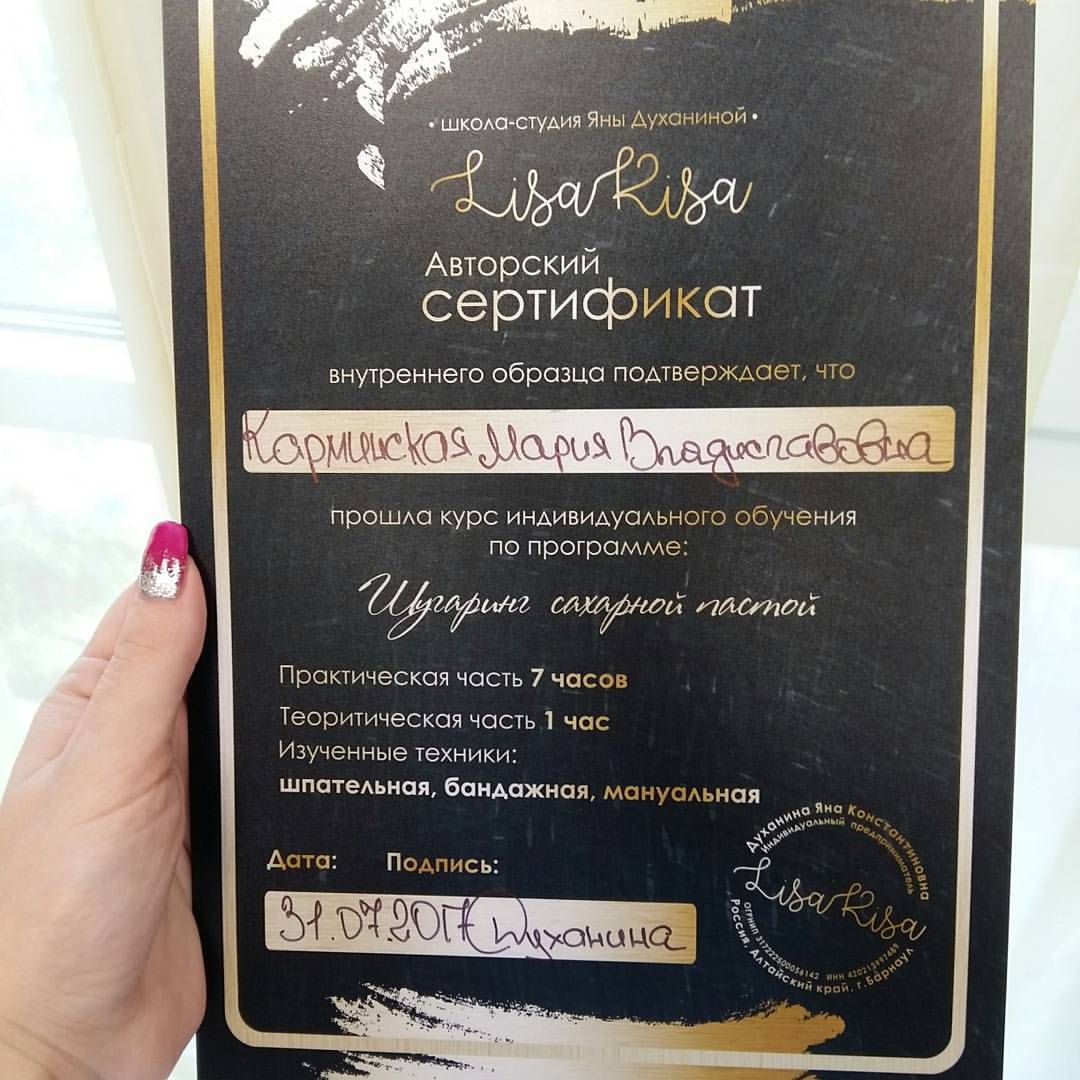 • школа-студия Яны Духаниной •
Lisa Risa
Авторский
сертификат
внутреннего образца подтверждает, что
Карминская Мария Владиславовна
прошла курс индивидуального обучения
по программе:
Шугаринг сахарной пастой
Практическая часть 7 часов
Теоритическая часть 1 час
Изученные техники:
шпательная, бандажная, мануальная
Дата: Подпись:
31.07.2017 Духанина
Духанина Яна Константиновна
Индивидуальный предприниматель
Lisa Risa
ОГРНИП 317222500056142 ИНН 420213997489
Россия, Алтайский край, г. Барнаул